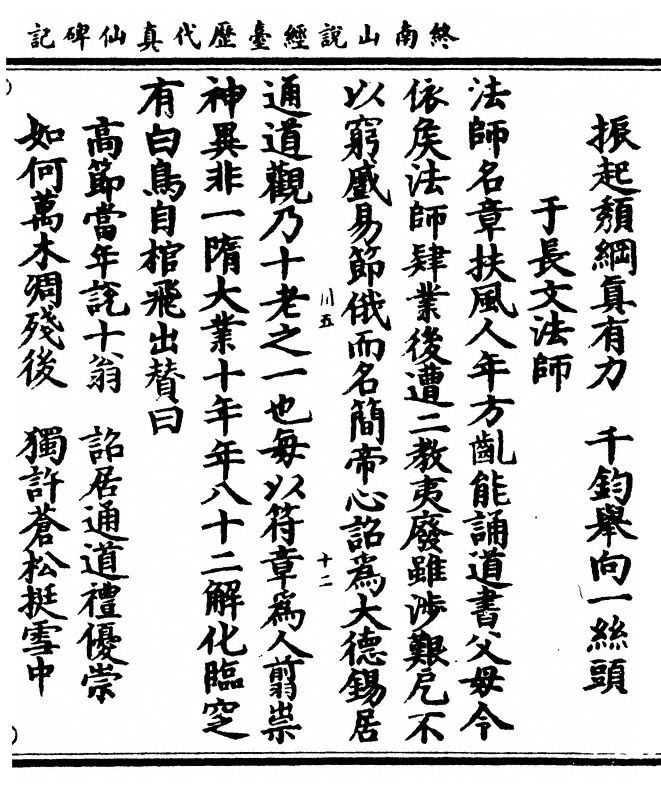 終南山說經臺歷代真仙碑記
振起頹綱真有力　千鈞舉向一絲頭
于長文法師
法師名章扶風人年方齔能誦道書父母令
依侯法師肆業後遭二教夷廢雖涉艱戹不
以窮戲易節俄而名簡帝心詔為大德錫居
通道觀乃十老之一也每以符章為人翦祟
神異非一隋大業十年年八十二解化臨窆
有白鳥自棺飛出贊曰
高節當年說十翁　詔居通道禮優崇
如何萬木凋殘後　獨許蒼松挺雪中
川五
十二